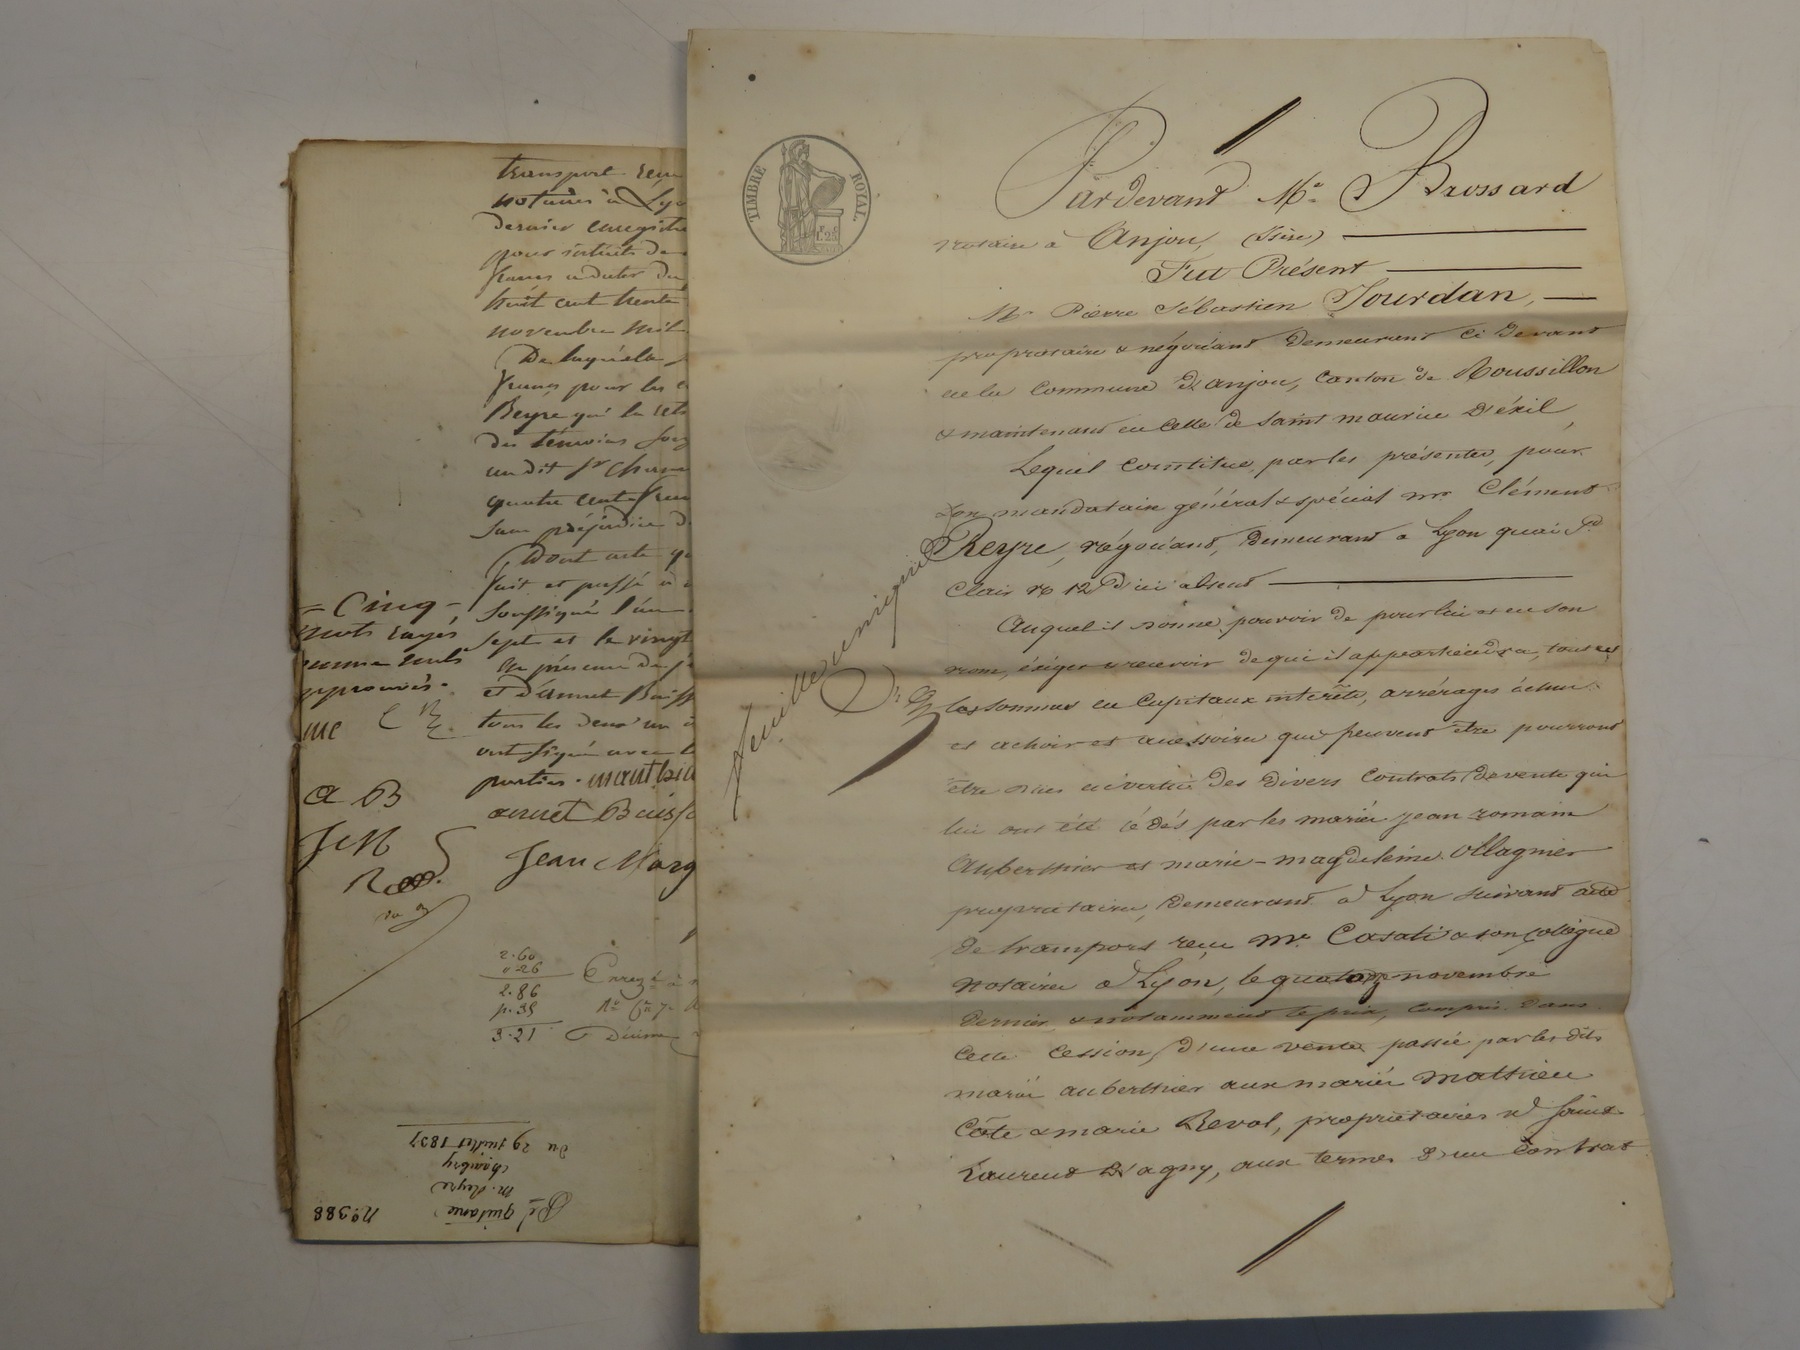 transport reçu
notaires à Lyo
dernier enregistré
pour intérêts de
francs à dater du
huit cent trente
novembre mil
De laquelle
francs pour les
Reyre qui la
des témoins
un dit Sr
quatre cents
sans préjudice d
Dont acte
fait et passé à
soussigné l'an
sept et le vingt
En présence de
et d'annet Buiss
tous les deux
ont signé avec
parties.
annet Buiss
Jean Marg
= Cinq
mots rayés
comme nuls
approuvés.
a B
JM
2.60
0.26
2.86
3.21
Décime
No 388
quittance
M. Reyre
du 29 juillet 1837
TIMBRE ROYAL
Pardevant Me Brossard
notaire à Anjou, (Isère)
Fut Présent
Mr Pierre Sébastien Jourdan,
propriétaire & négociant demeurant ci devant
en la commune d'anjou, canton de Roussillon
& maintenant en celle de saint maurice d'éxil,
Lequel constitue, par les présentes, pour
son mandataire général & spécial mr Clément
Reyre, négociant, demeurant à Lyon quai St
Clair no 12 ici absent
Auquel il donne pouvoir de pour lui et en son
nom, éxiger & recevoir de qui il appartiendra, toutes
les sommes en capitaux intérêts, arrérages échus
et à choir et accessoires que peuvent être pourront
être dues en vertu des divers contrats de vente qui
lui ont été cédés par les mariés jean romain
Auberthier et marie-magdeleine Ollagnier
propriétaires, demeurant à Lyon suivant acte
de transport reçu Me Casati & son collègue
notaires à Lyon, le quatorze novembre
dernier, & notamment le prix, compris dans
cette cession, d'une vente passée par les dits
mariés auberthier aux mariés mathieu
Côte & marie Revol, propriétaires à saint
Laurent d'agny, aux termes d'un contrat
feuille unique